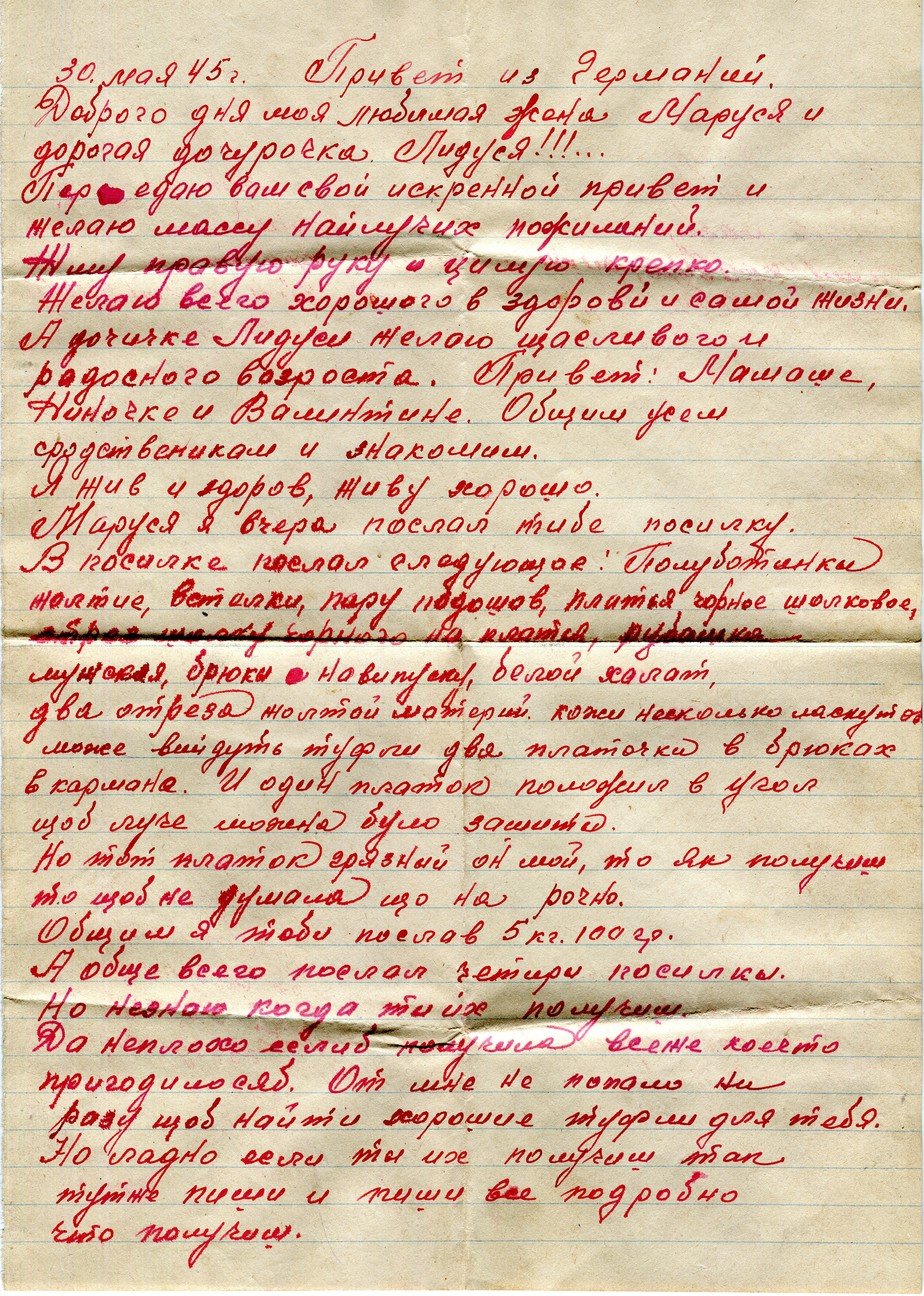 30. мая 45 г. Привет из Германий.
Доброго дня моя любимая жена Маруся и
дорогая дочурочка Лидуся!!!...
Передаю вам свой искренной привет и
желаю массу наймучих пожиланий.
Жму правую руку и цимую крепко.
Желаю всего хорошого в здоровй и самой жизни.
А дочичке Лидуси желаю щасливого и
радосного возроста. Привет: Мамаше,
Ниночке и Валинтине. Общим усем
сродственикам и знакомим.
Я жив и здоров, живу хорошо.
Маруся я вчера послал тибе посилку.
В посилке послал следующае: Полуботинки
жолтие, встелки, пару подошов, платья чорное шолковое,
отрез шолку чорного на платя, рубашка
мужская, брюки навипуск, белой халат,
два отреза жолтой материй. кожи несколько ласкутов
може вийдуть туфли два платочка в брюках
в кармана. И один платок положил в угол
щоб луче можна було зашити.
Но тот платок грязний он мой, то як получиш
то щоб не думала що на рочно.
Общим я тоби послав 5 кг. 100 гр.
А обще всего послал четири посилки.
Но незнаю когда ти их получиш.
Да неплохо еслиб получила всеже коечто
пригодилосяб. От мне не попало ни
разу щоб найти хорошие туфли для тебя.
Но ладно если ты их получиш так
тутже пиши и пиши все подробно
что получиш.